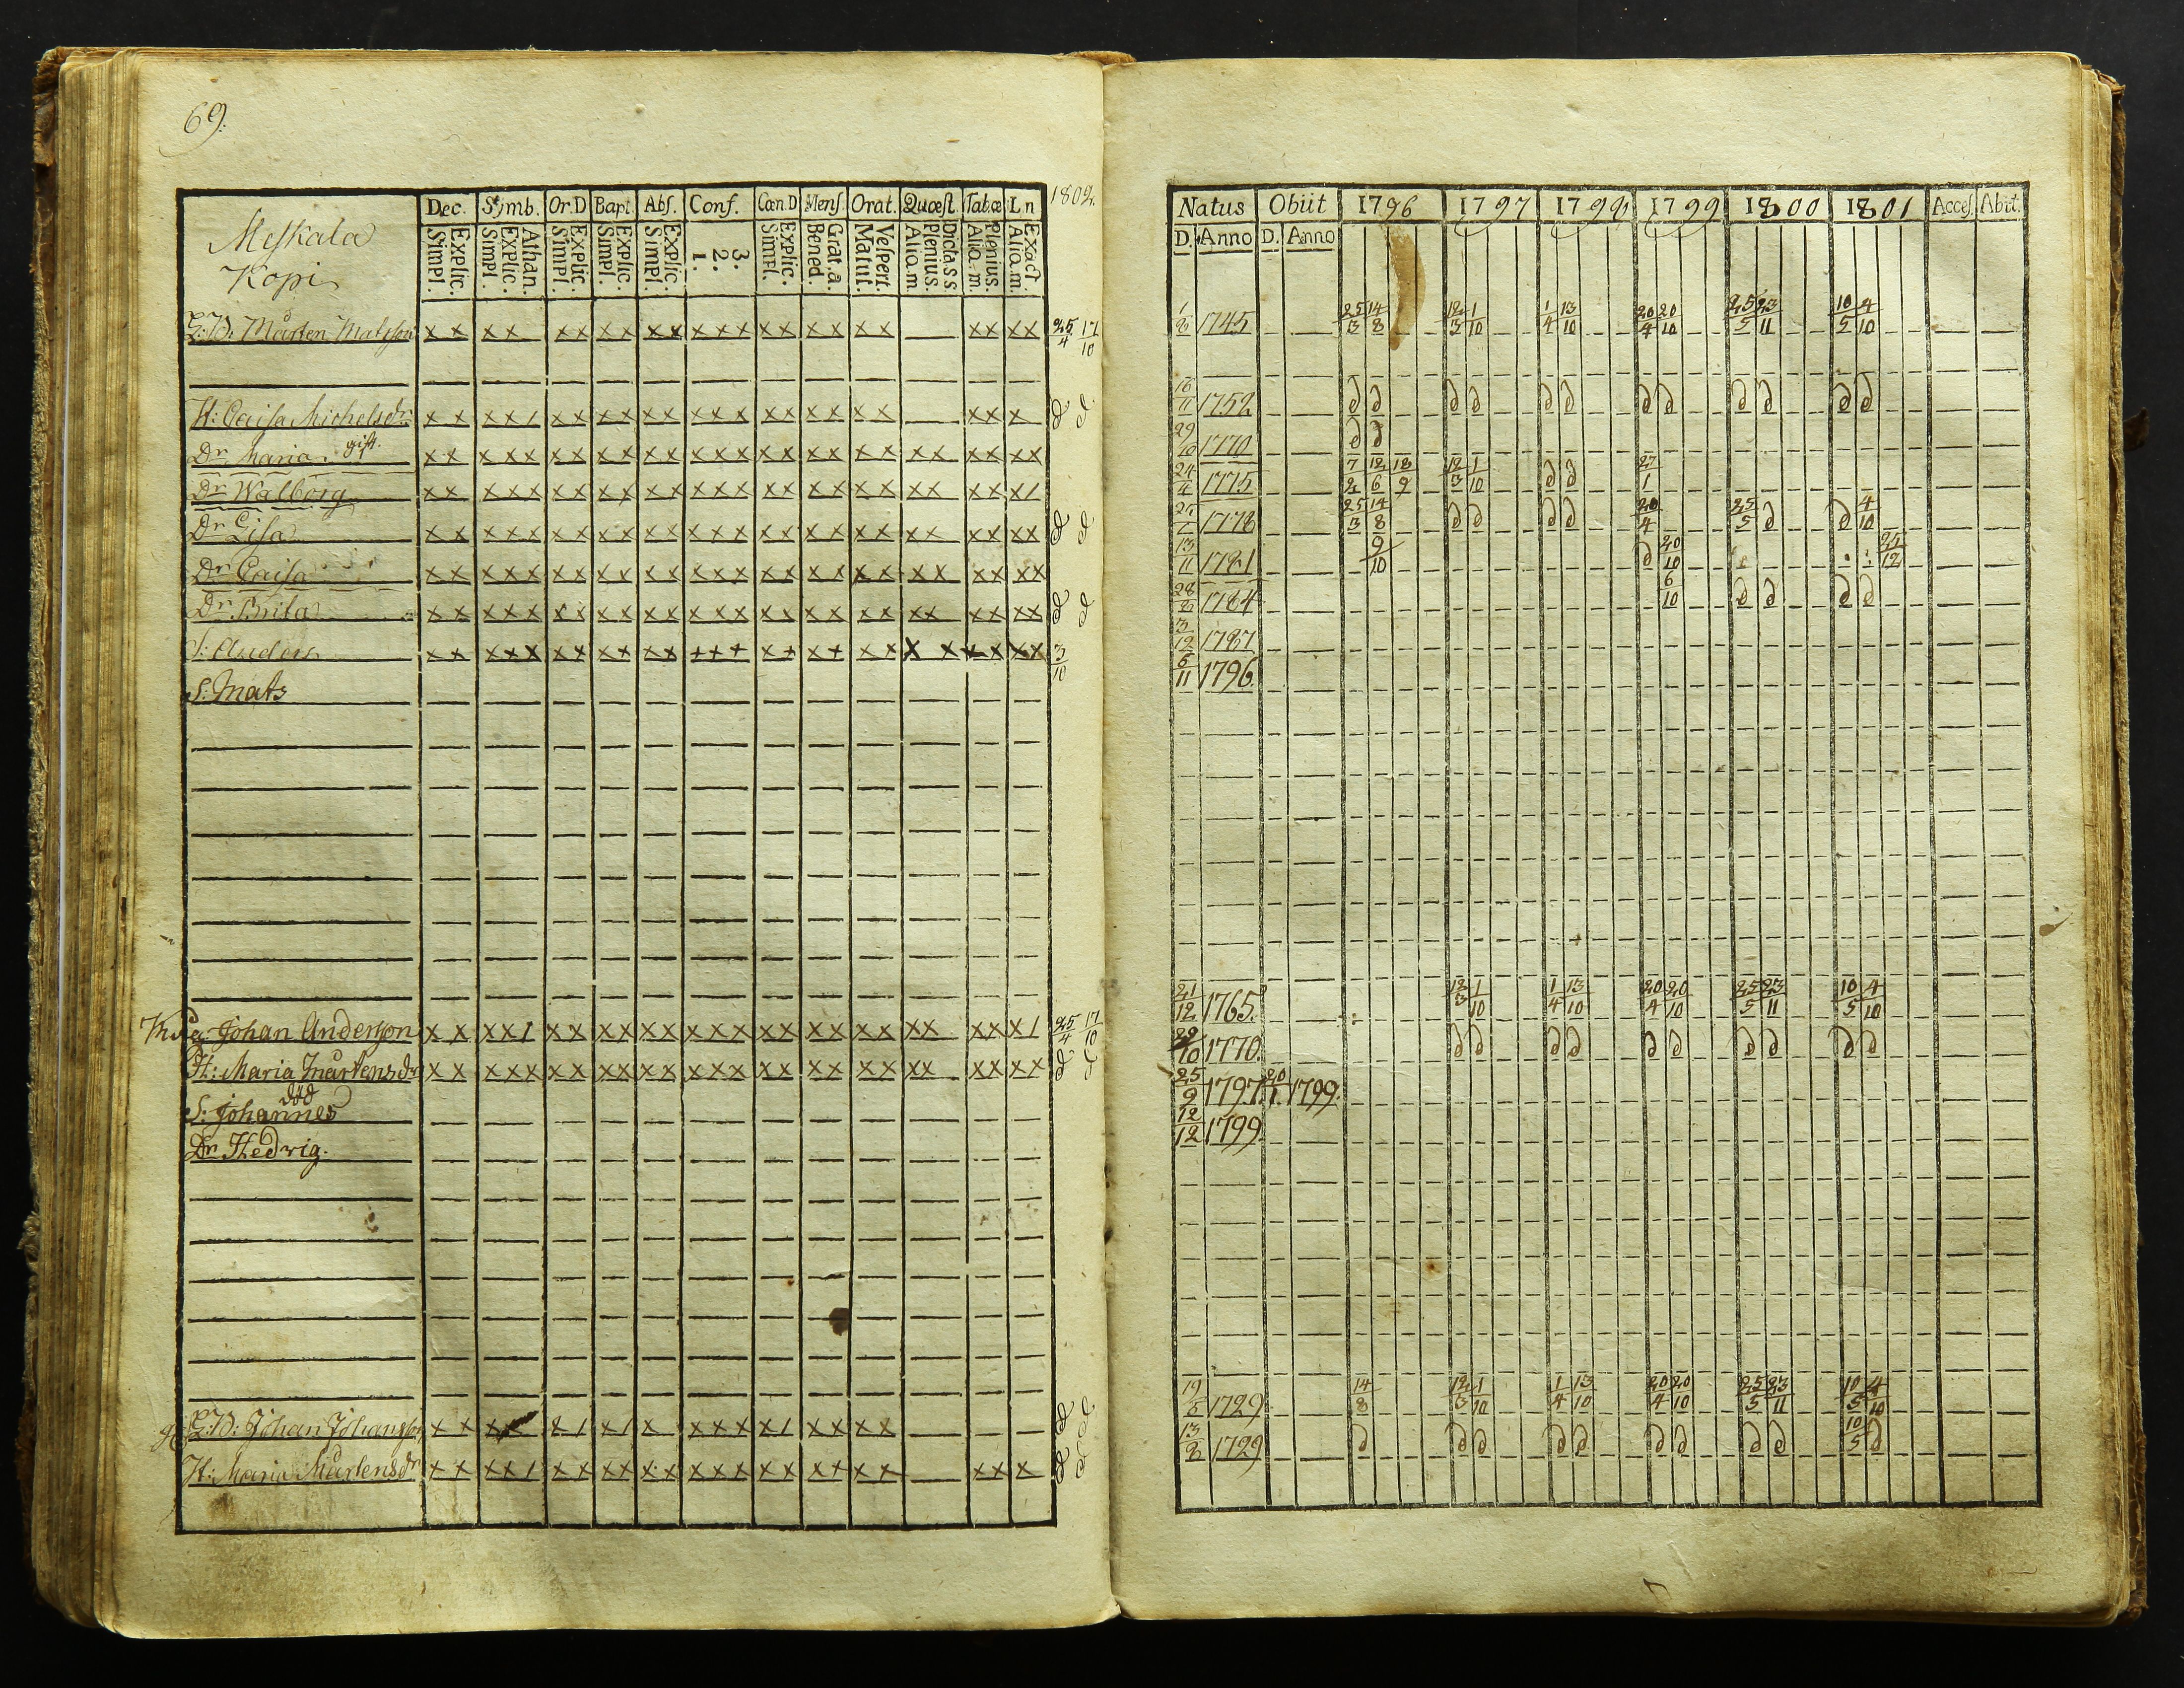 69.
Meskala
Kopi
Dec. Symb. Or.D Bapt. Abſ. Conf. Cœn.D Menſ. Orat. Quœſt Tab.œ Ln 1802.
Explic. Simpl. Athan. Explic. Simpl. Explic. Simpl. Explic. Simpl. Explic. Simpl. 3. 2. 1. Explic. Simpl. Grat. a. Bened. Veſpert. Matut. Dicta S S. Plenius. Aliq. m. Plenius. Aliq. m. Exact. Aliq. m.
Mårten Matsson x x x x x x x x x x x x x x x x x x x x x x x 25/4 17/10
H: Caisa Michelsdr x x x x / x x x x x x x x x x x x x x x x x x d d
Dr Maria gift. x x x x x x x x x x x x x x x x x x x x x x x x x x
Dr Walborg x x x x x x x x x x x x x x x x x x x x x x x x x /
Dr Lisa x x x x x x x x x x x x x x x x x x x x x x x x x x d d
Dr Caisa x x x x x x x x x x x x x x x x x x x x x x x x x x
Dr Brita x x x x x x x x x x x x x x x x x x x x x x x x x x d d
S: Anders x x x x x x x x x x x + + + x + x + x x x x x x x x 3/10
S. Mats
Johan Andersson x x x x / x x x x x x x x x x x x x x x x x x x x / 25/4 17/10
H: Maria Mårtensdr x x x x x x x x x x x x x x x x x x x x x x x x x x d d
död
S. Johannes
Dr Hedvig.
Johan Johansson x x x x x / x / x x x x x / x x x x d d
H: Maria Mårtensdr x x x x / x x x x x x x x x x x x + x x x x x d d
Natus Obiit 1796 1797 1798 1799 1800 1801 Acceſ. Abiit.
D. Anno D. Anno
1/8 1745 25/3 14/8 12/3 1/10 1/4 13/10 20/4 20/10 25/5 23/11 10/5 4/10
16/11 1752 d d d d d d d d d d d d
29/10 1770 d d
24/4 1775 7/2 12/6 18/9 12/3 1/10 d d 27/1
1778 25/3 14/8 d d d d 20/4 25/5 d d 4/10
13/11 1781 9/10 d 20/10 25/12
1784 6/10 d d d d
3/12 1787
6/11 1796.
21/12 1765. 12/3 1/10 1/4 13/10 20/4 20/10 25/5 23/11 10/5 4/10
29/10 1770. d d d d d d d d d d
25/9 1797. 20/1. 1799.
12/12 1799.
19/5 1729 14/8 12/3 1/10 1/4 13/10 20/4 20/10 25/5 23/11 10/5 4/10
13/8 1729 d d d d d d d d d 10/5 d